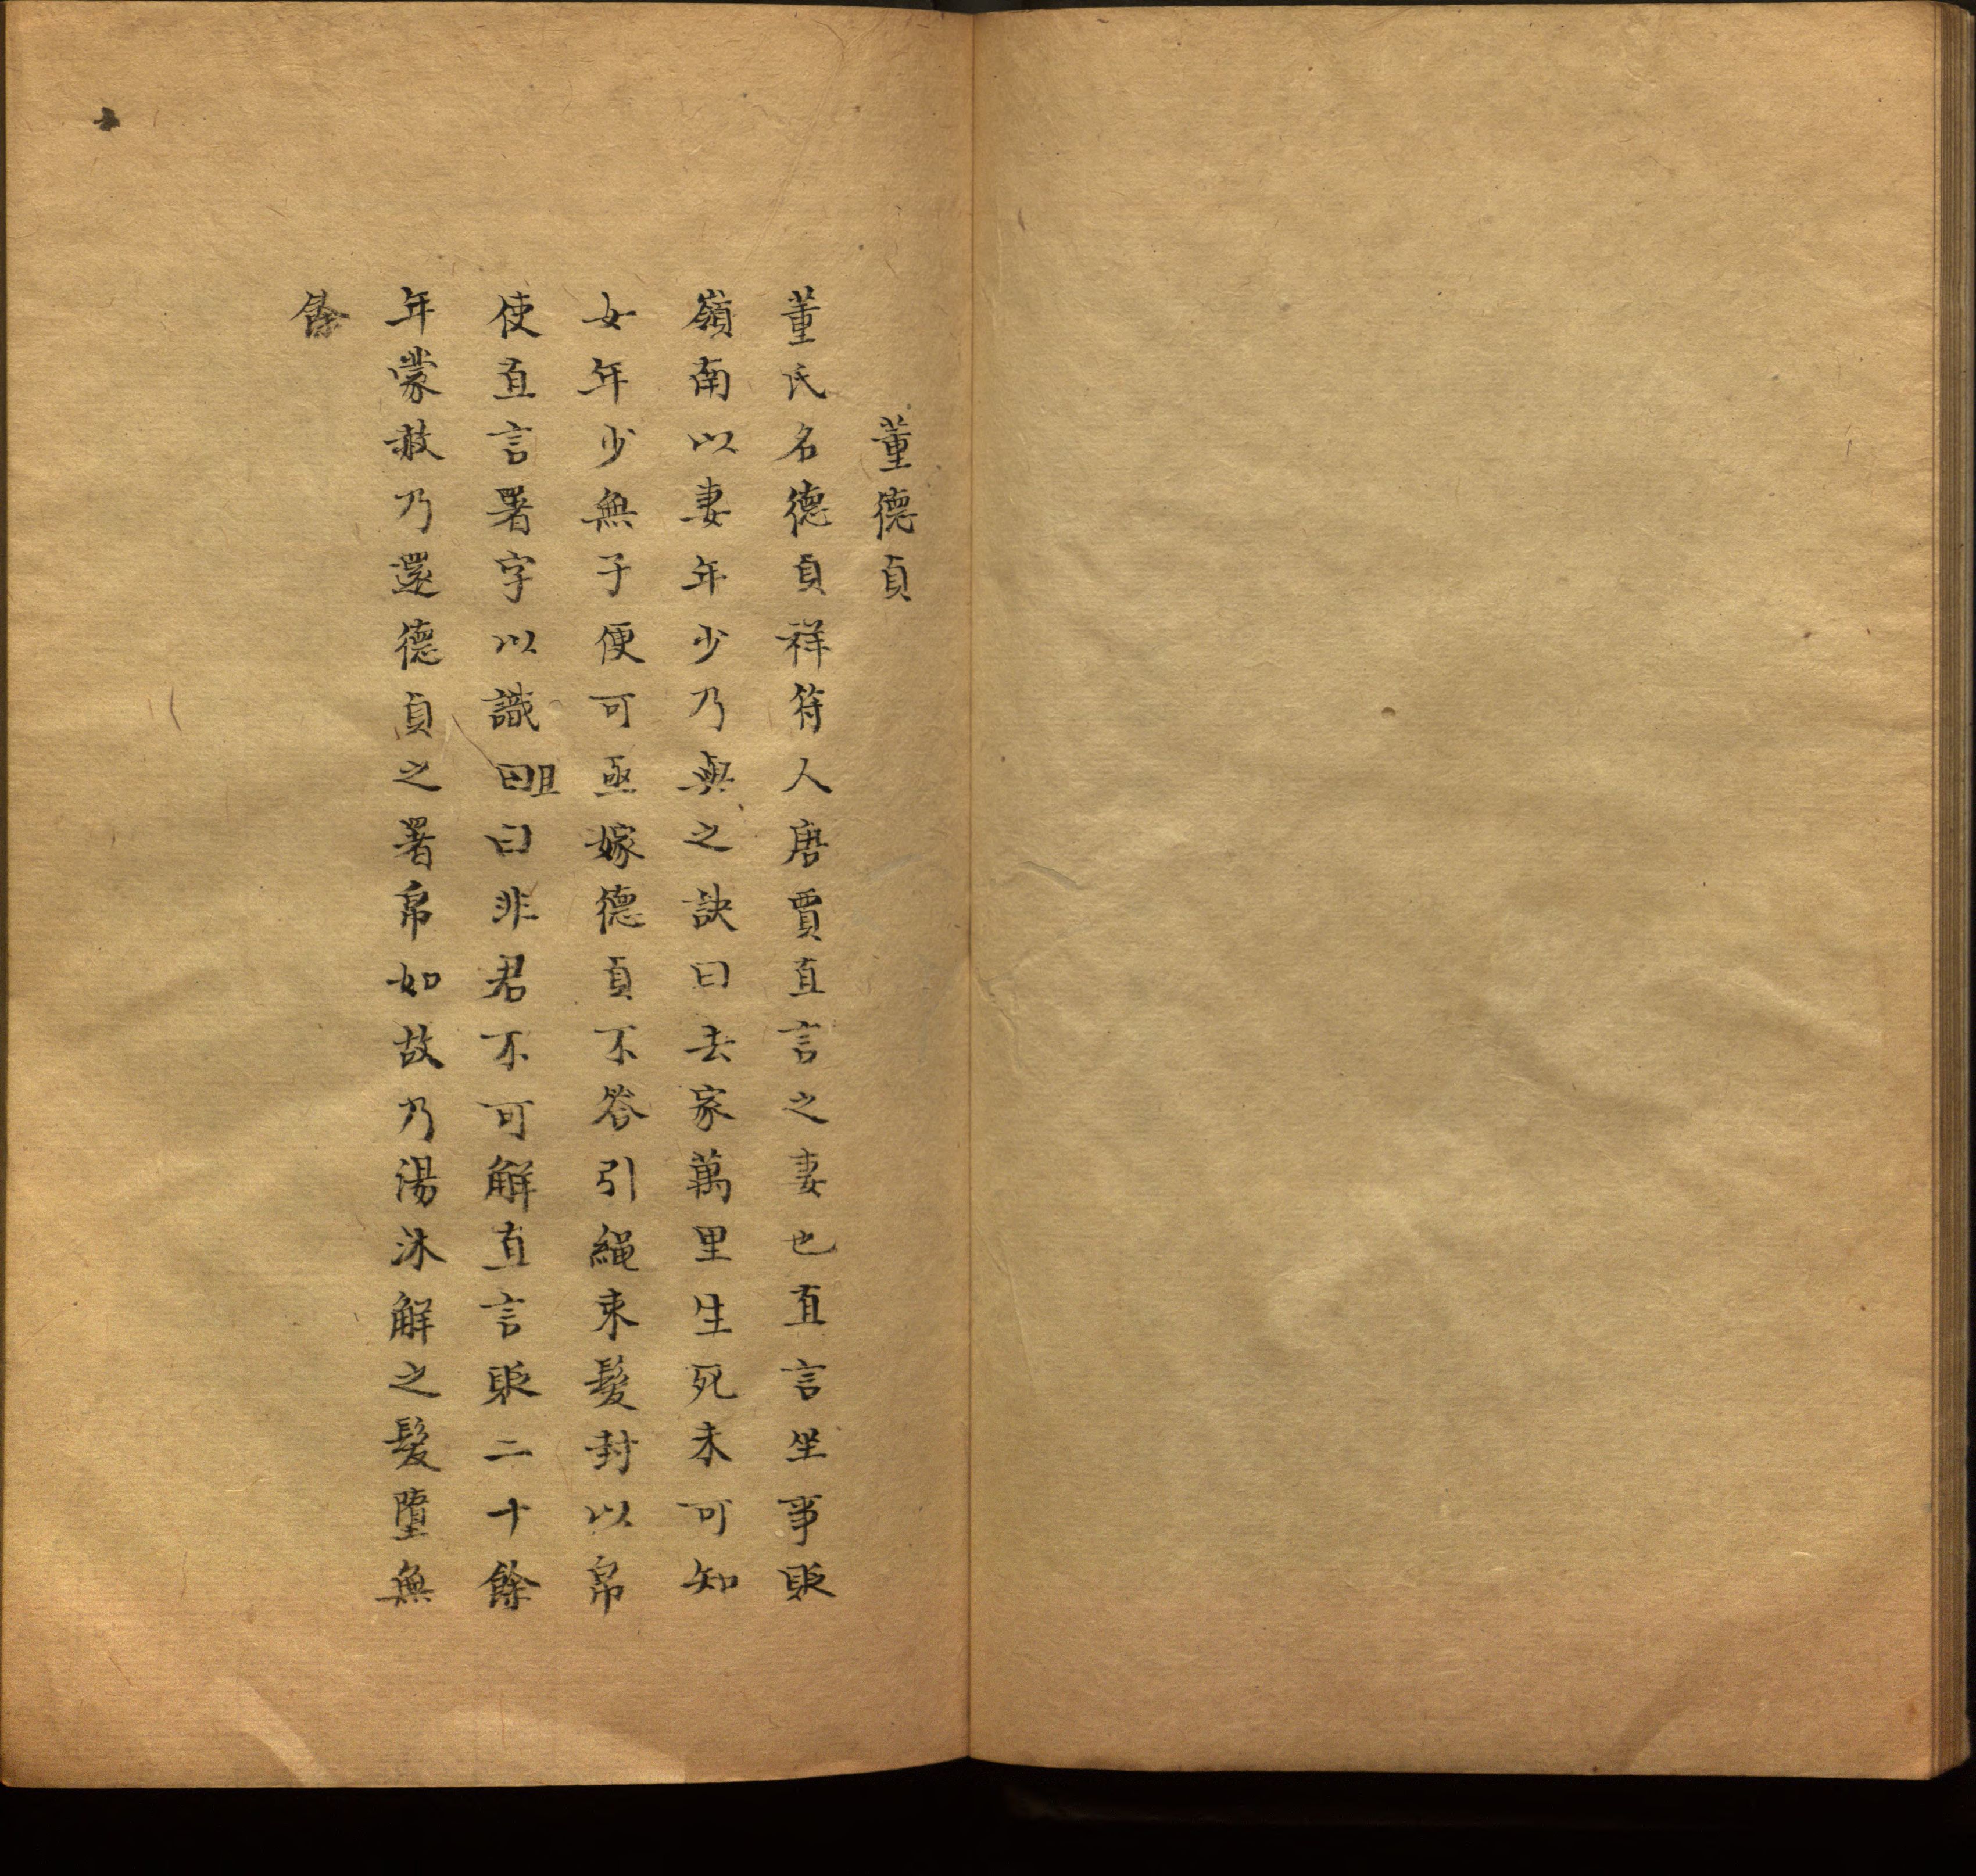 董德貞
董氏名德貞祥符人唐賈直言之妻也直言坐事貶
嶺南以妻年少乃與之訣曰去家萬里生死未可知
女年少無子便可亟嫁德貞不答引繩束髮封以帛
使直言署字以識曰且曰非君不可解直言貶二十餘
年蒙赦乃還德貞之署帛如故乃湯沐解之髮墮無
餘